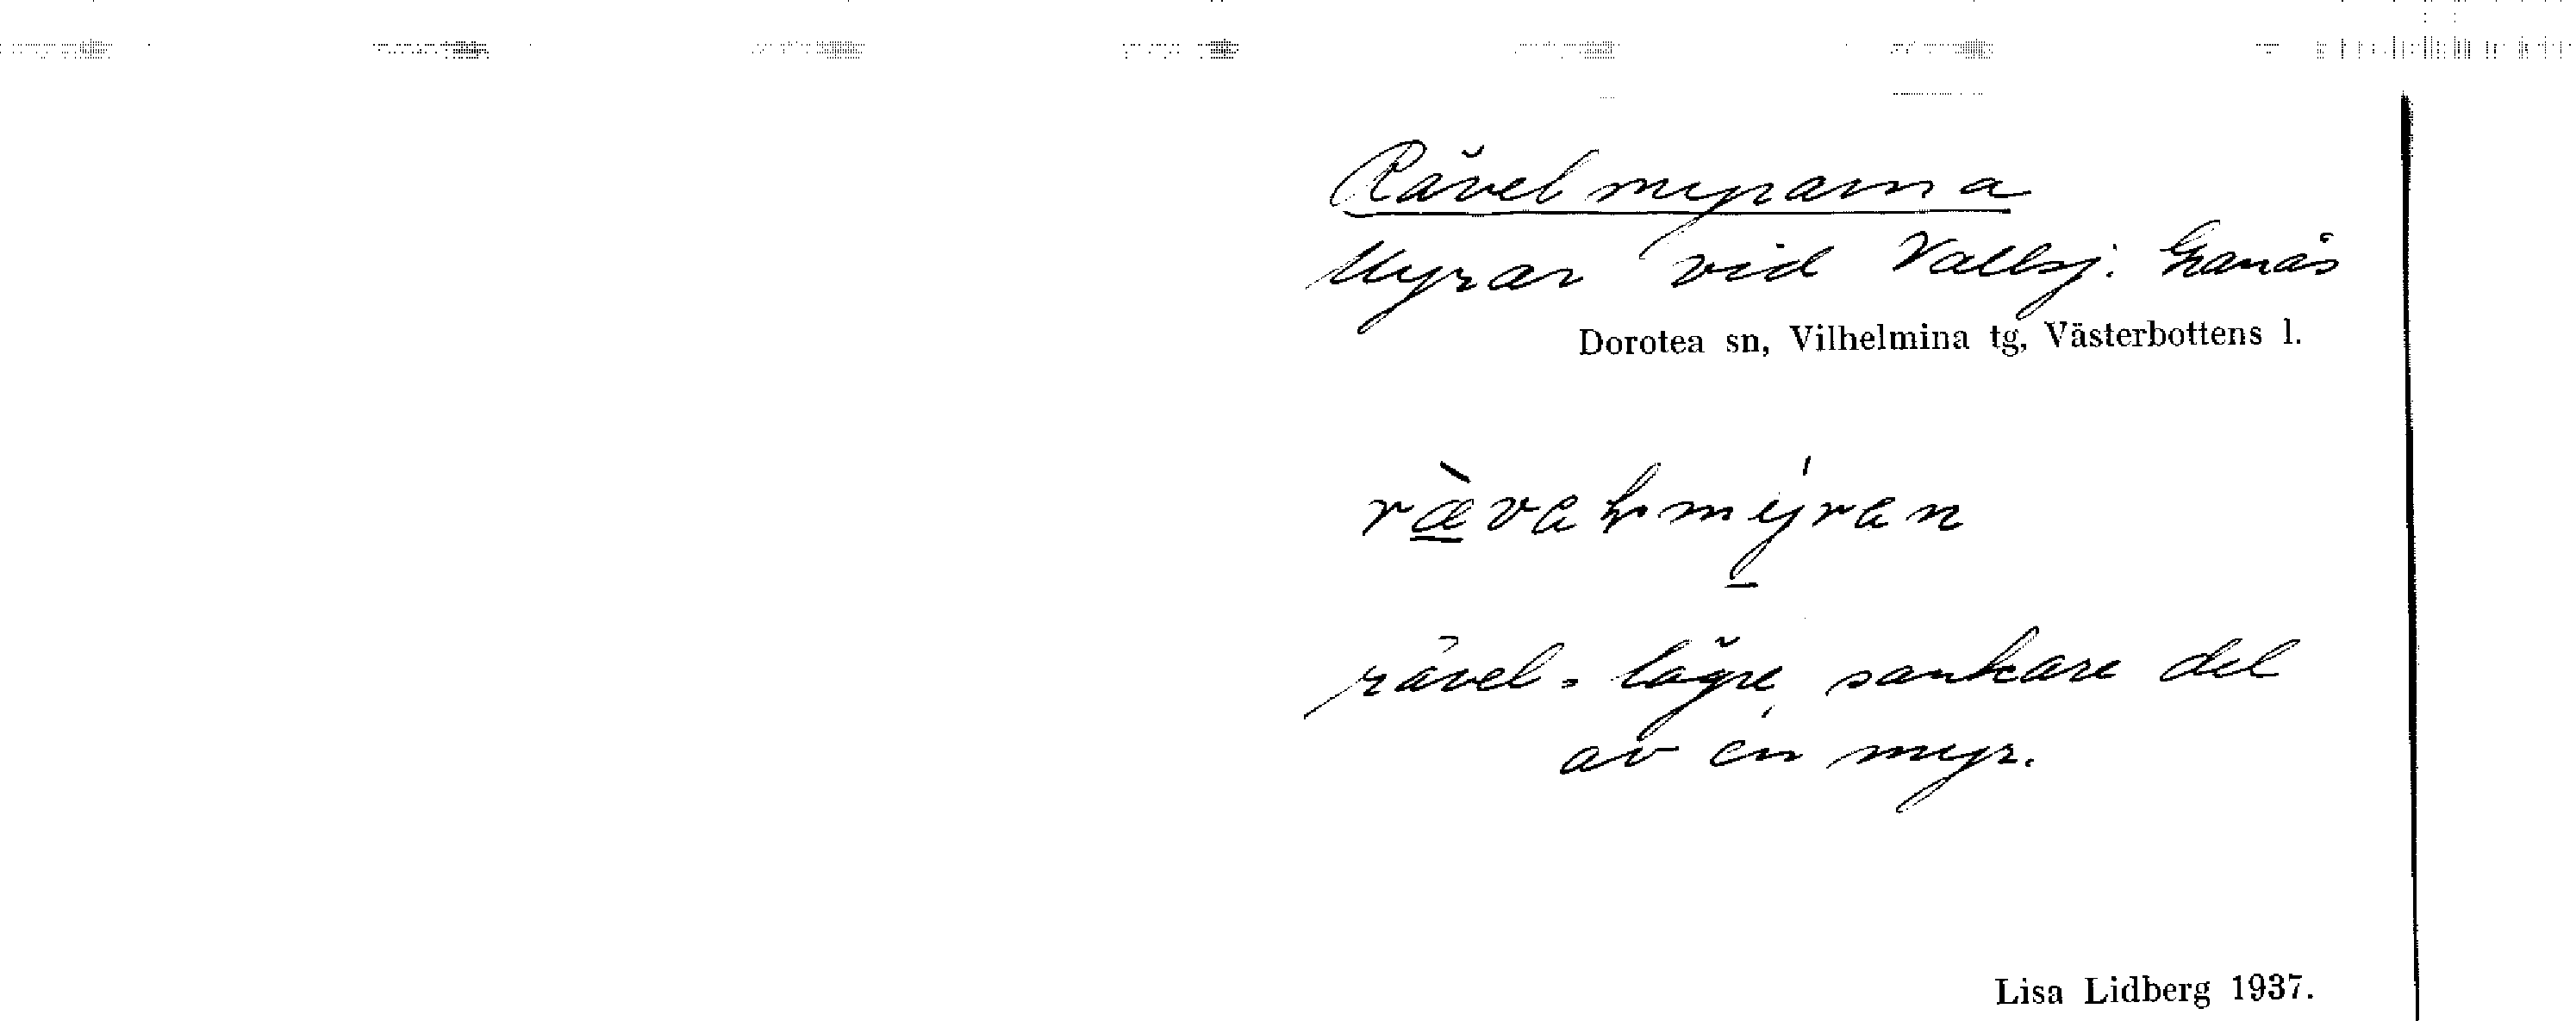 Rävelmyrarna
Myrar vid Vallsj. Granås
Dorotea sn, Vilhelmina tg, Västerbottens l.
rävel = lägre, sankare del
av en myr.
Lisa Lidberg 1937.